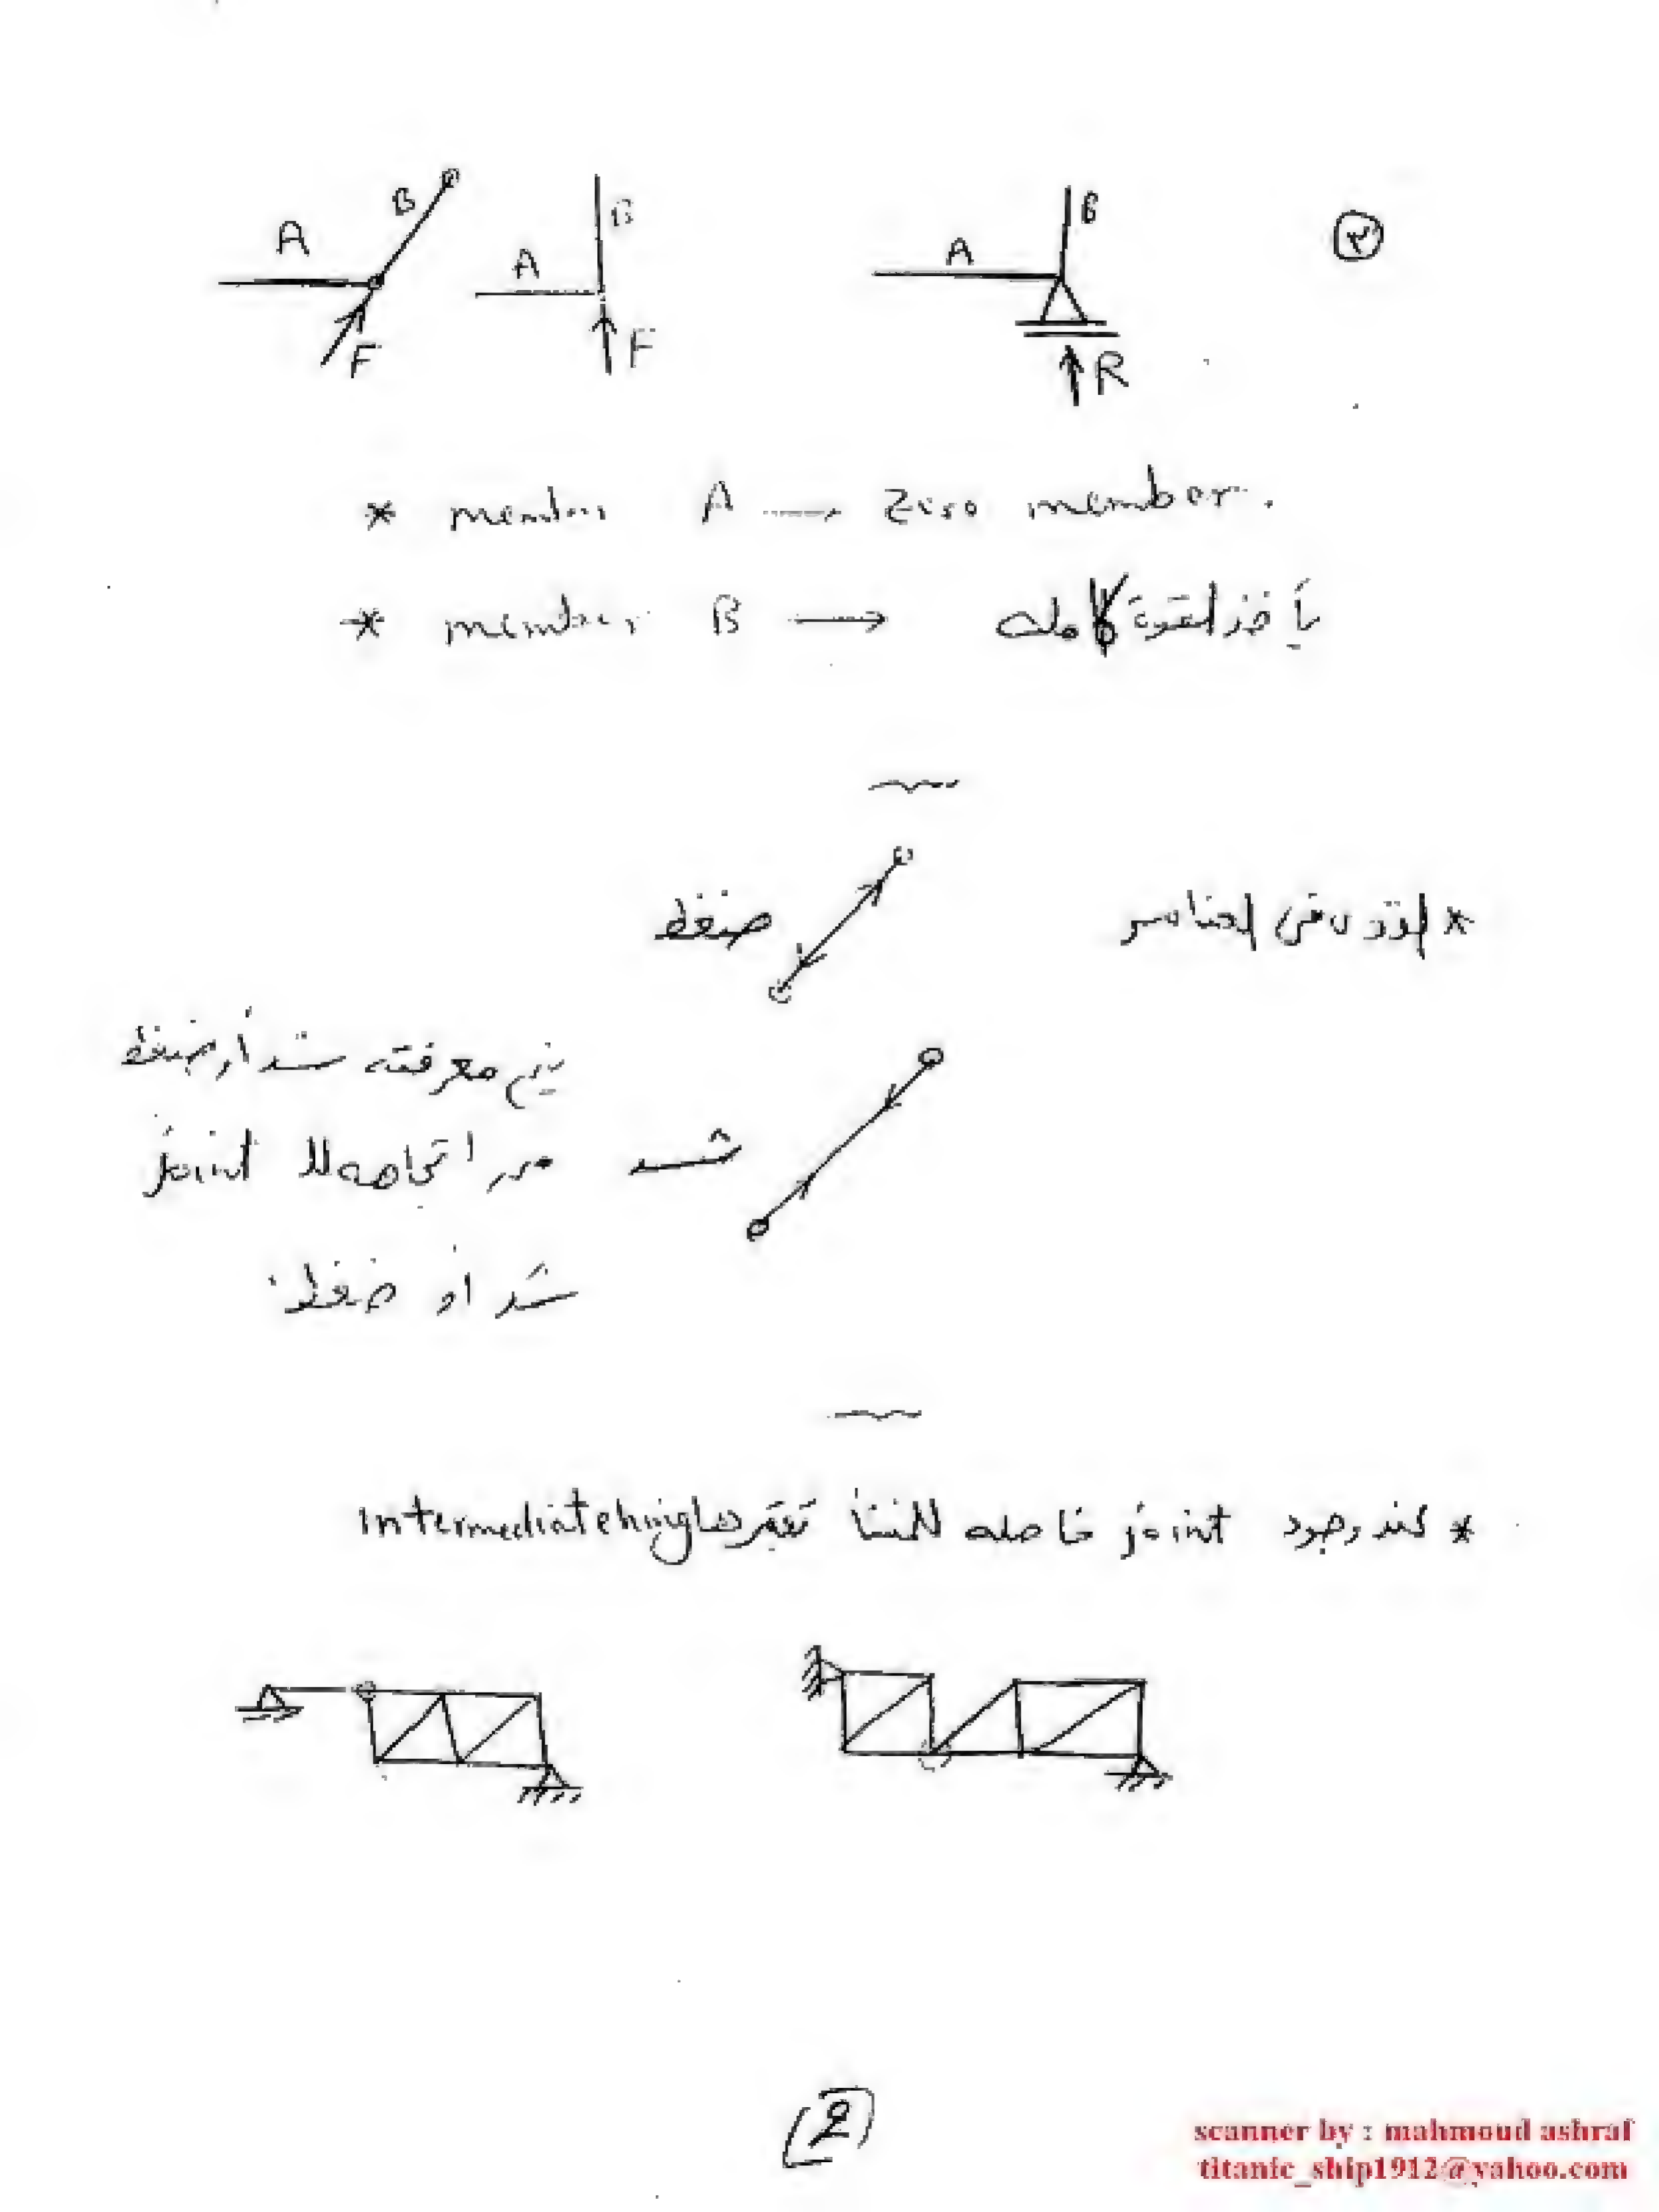 A B A B A B ٣
F F R
* member A → Zero member.
* member B → يأخذ القوة كاملة
* القوى فى العناصر
ضغط
يتم معرفته شد أو ضغط
شد
من اتجاهه للـ joint
شد أو ضغط
* عند وجود joint فاصله للمنشأ تعتبرها intermediate hinge
(2)
scanner by : mahmoud ashraf
titanic_ship1912@yahoo.com